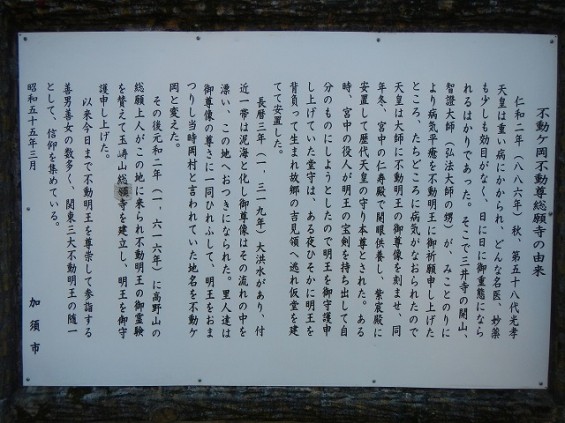 不動ヶ岡不動尊總願寺の由来
仁和二年(八八六年)秋、第五十八代光孝
天皇は重い病にかかられ、どんな名医、妙薬
も少しも効目がなく、日に日に御重態になら
れるばかりであった。そこで三井寺の開山、
智證大師(弘法大師の甥)が、みことのりに
より病気平癒を不動明王に御祈願申し上げた
ところ、たちどころに病気がなおられたので
天皇は大師に不動明王の御尊像を刻ませ、同
年冬、宮中の仁寿殿で開眼供養し、紫宸殿に
安置して歴代天皇の守り本尊とされた。ある
時、宮中の役人が明王の宝剣を持ち出して自
分のものにしようとしたので明王を御守護申
し上げていた堂守は、ある夜ひそかに明王を
背負って生まれ故郷の吉見領へ逃れ仮堂を建
てて安置した。
長暦三年(一、三一九年)大洪水があり、付
近一帯は泥海と化し御尊像はその流れの中を
漂い、この地へおつきになられた。里人達は
御尊像の尊さに一同ひれふして、明王をおま
つりし当時岡村と言われていた地名を不動ヶ
岡と変えた。
その後元和二年(一、六一六年)に高野山の
総願上人がこの地に来られ不動明王の御霊験
を賛えて玉嶹山總願寺を建立し、明王を御守
護申し上げた。
以来今日まで不動明王を尊崇して参詣する
善男善女の数多く、関東三大不動明王の随一
として、信仰を集めている。
昭和五十五年三月
加須市